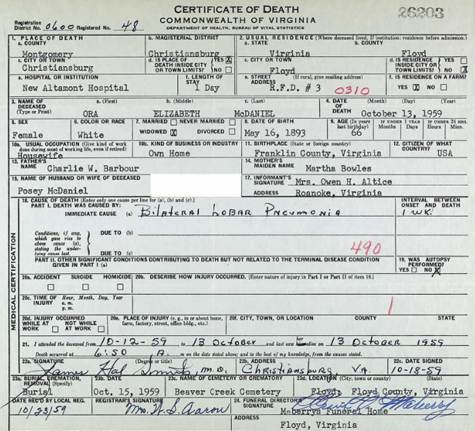 CERTIFICATE OF DEATH
COMMONWEALTH OF VIRGINIA
DEPARTMENT OF HEALTH, BUREAU OF VITAL STATISTICS
26203
District No. 0600 Registered No. 48
1. PLACE OF DEATH
a. COUNTY
Montgomery
b. MAGISTERIAL DISTRICT
Christiansburg
2. USUAL RESIDENCE (Where deceased lived, If institution: residence before admission)
a. STATE
Virginia
b. COUNTY
Floyd
c. CITY OR TOWN
Christiansburg
d. IS PLACE OF DEATH INSIDE CITY OR TOWN LIMITS?
YES X
NO
c. CITY OR TOWN
Floyd
d. IS RESIDENCE INSIDE CITY OR TOWN LIMITS?
YES
NO X
e. HOSPITAL OR INSTITUTION
New Altamont Hospital
f. LENGTH OF STAY
1 Day
e. STREET ADDRESS (If rural, give mailing address)
R.F.D. # 3
0310
f. IS RESIDENCE ON A FARM?
YES X NO
3. NAME OF DECEASED (Type or Print)
a. (First)
ORA
b. (Middle)
ELIZABETH
c. (Last)
McDANIEL
4. DATE OF DEATH
(Month) (Day) (Year)
October 13, 1959
5. SEX
Female
6. COLOR OR RACE
White
7. MARRIED NEVER MARRIED
WIDOWED X DIVORCED
8. DATE OF BIRTH
May 16, 1893
9. AGE (In years last birthday)
66
10a. USUAL OCCUPATION (Give kind of work done during most of working life, even if retired)
Housewife
10b. KIND OF BUSINESS OR INDUSTRY
Own Home
11. BIRTHPLACE (State or foreign country)
Franklin County, Virginia
12. CITIZEN OF WHAT COUNTRY?
USA
13. FATHER'S NAME
Charlie W. Barbour
14. MOTHER'S MAIDEN NAME
Martha Bowles
15. NAME OF HUSBAND OR WIFE OF DECEASED
Posey McDaniel
17. INFORMANT'S SIGNATURE
Mrs. Owen H. Altice
ADDRESS
Roanoke, Virginia
MEDICAL CERTIFICATION
18. CAUSE OF DEATH (Enter only one cause per line for (a), (b), and (c).)
PART I. DEATH WAS CAUSED BY:
IMMEDIATE CAUSE (a) Bilateral Lobar Pneumonia
INTERVAL BETWEEN ONSET AND DEATH
1 WK
Conditions, if any, which gave rise to above cause (a), stating the underlying cause last.
DUE TO (b)
DUE TO (c)
490
PART II. OTHER SIGNIFICANT CONDITIONS CONTRIBUTING TO DEATH BUT NOT RELATED TO THE TERMINAL DISEASE CONDITION GIVEN IN PART I (a)
19. WAS AUTOPSY PERFORMED?
YES NO X
20a. ACCIDENT SUICIDE HOMICIDE
20b. DESCRIBE HOW INJURY OCCURRED. (Enter nature of injury in Part I or Part II of item 18.)
20c. TIME OF INJURY
Hour, Month, Day, Year
a. m.
p. m.
1
20d. INJURY OCCURRED
WHILE AT WORK
NOT WHILE AT WORK
20e. PLACE OF INJURY (e.g., in or about home, farm, factory, street, office bldg., etc.)
20f. CITY, TOWN, OR LOCATION
COUNTY
STATE
21. I attended the deceased from 10-12-59 to 13 October and last saw alive on 13 October 1959
Death occurred at 6:50 A. m on the date stated above; and to the best of my knowledge, from the causes stated.
22a. SIGNATURE
(Degree or title)
M.D.
22b. ADDRESS
Christiansburg VA
22c. DATE SIGNED
10-18-59
23a. BURIAL, CREMATION, REMOVAL (Specify)
Burial
23b. DATE
Oct. 15, 1959
23c. NAME OF CEMETERY OR CREMATORY
Beaver Creek Cemetery
23d. LOCATION (City, town, or county) (State)
Floyd, Floyd County, Virginia
DATE REC'D BY LOCAL REG.
10/23/59
REGISTRAR'S SIGNATURE
Mrs. W. D. Aaron
24. FUNERAL DIRECTOR'S SIGNATURE
ADDRESS
Maberrys Funeral Home
Floyd, Virginia